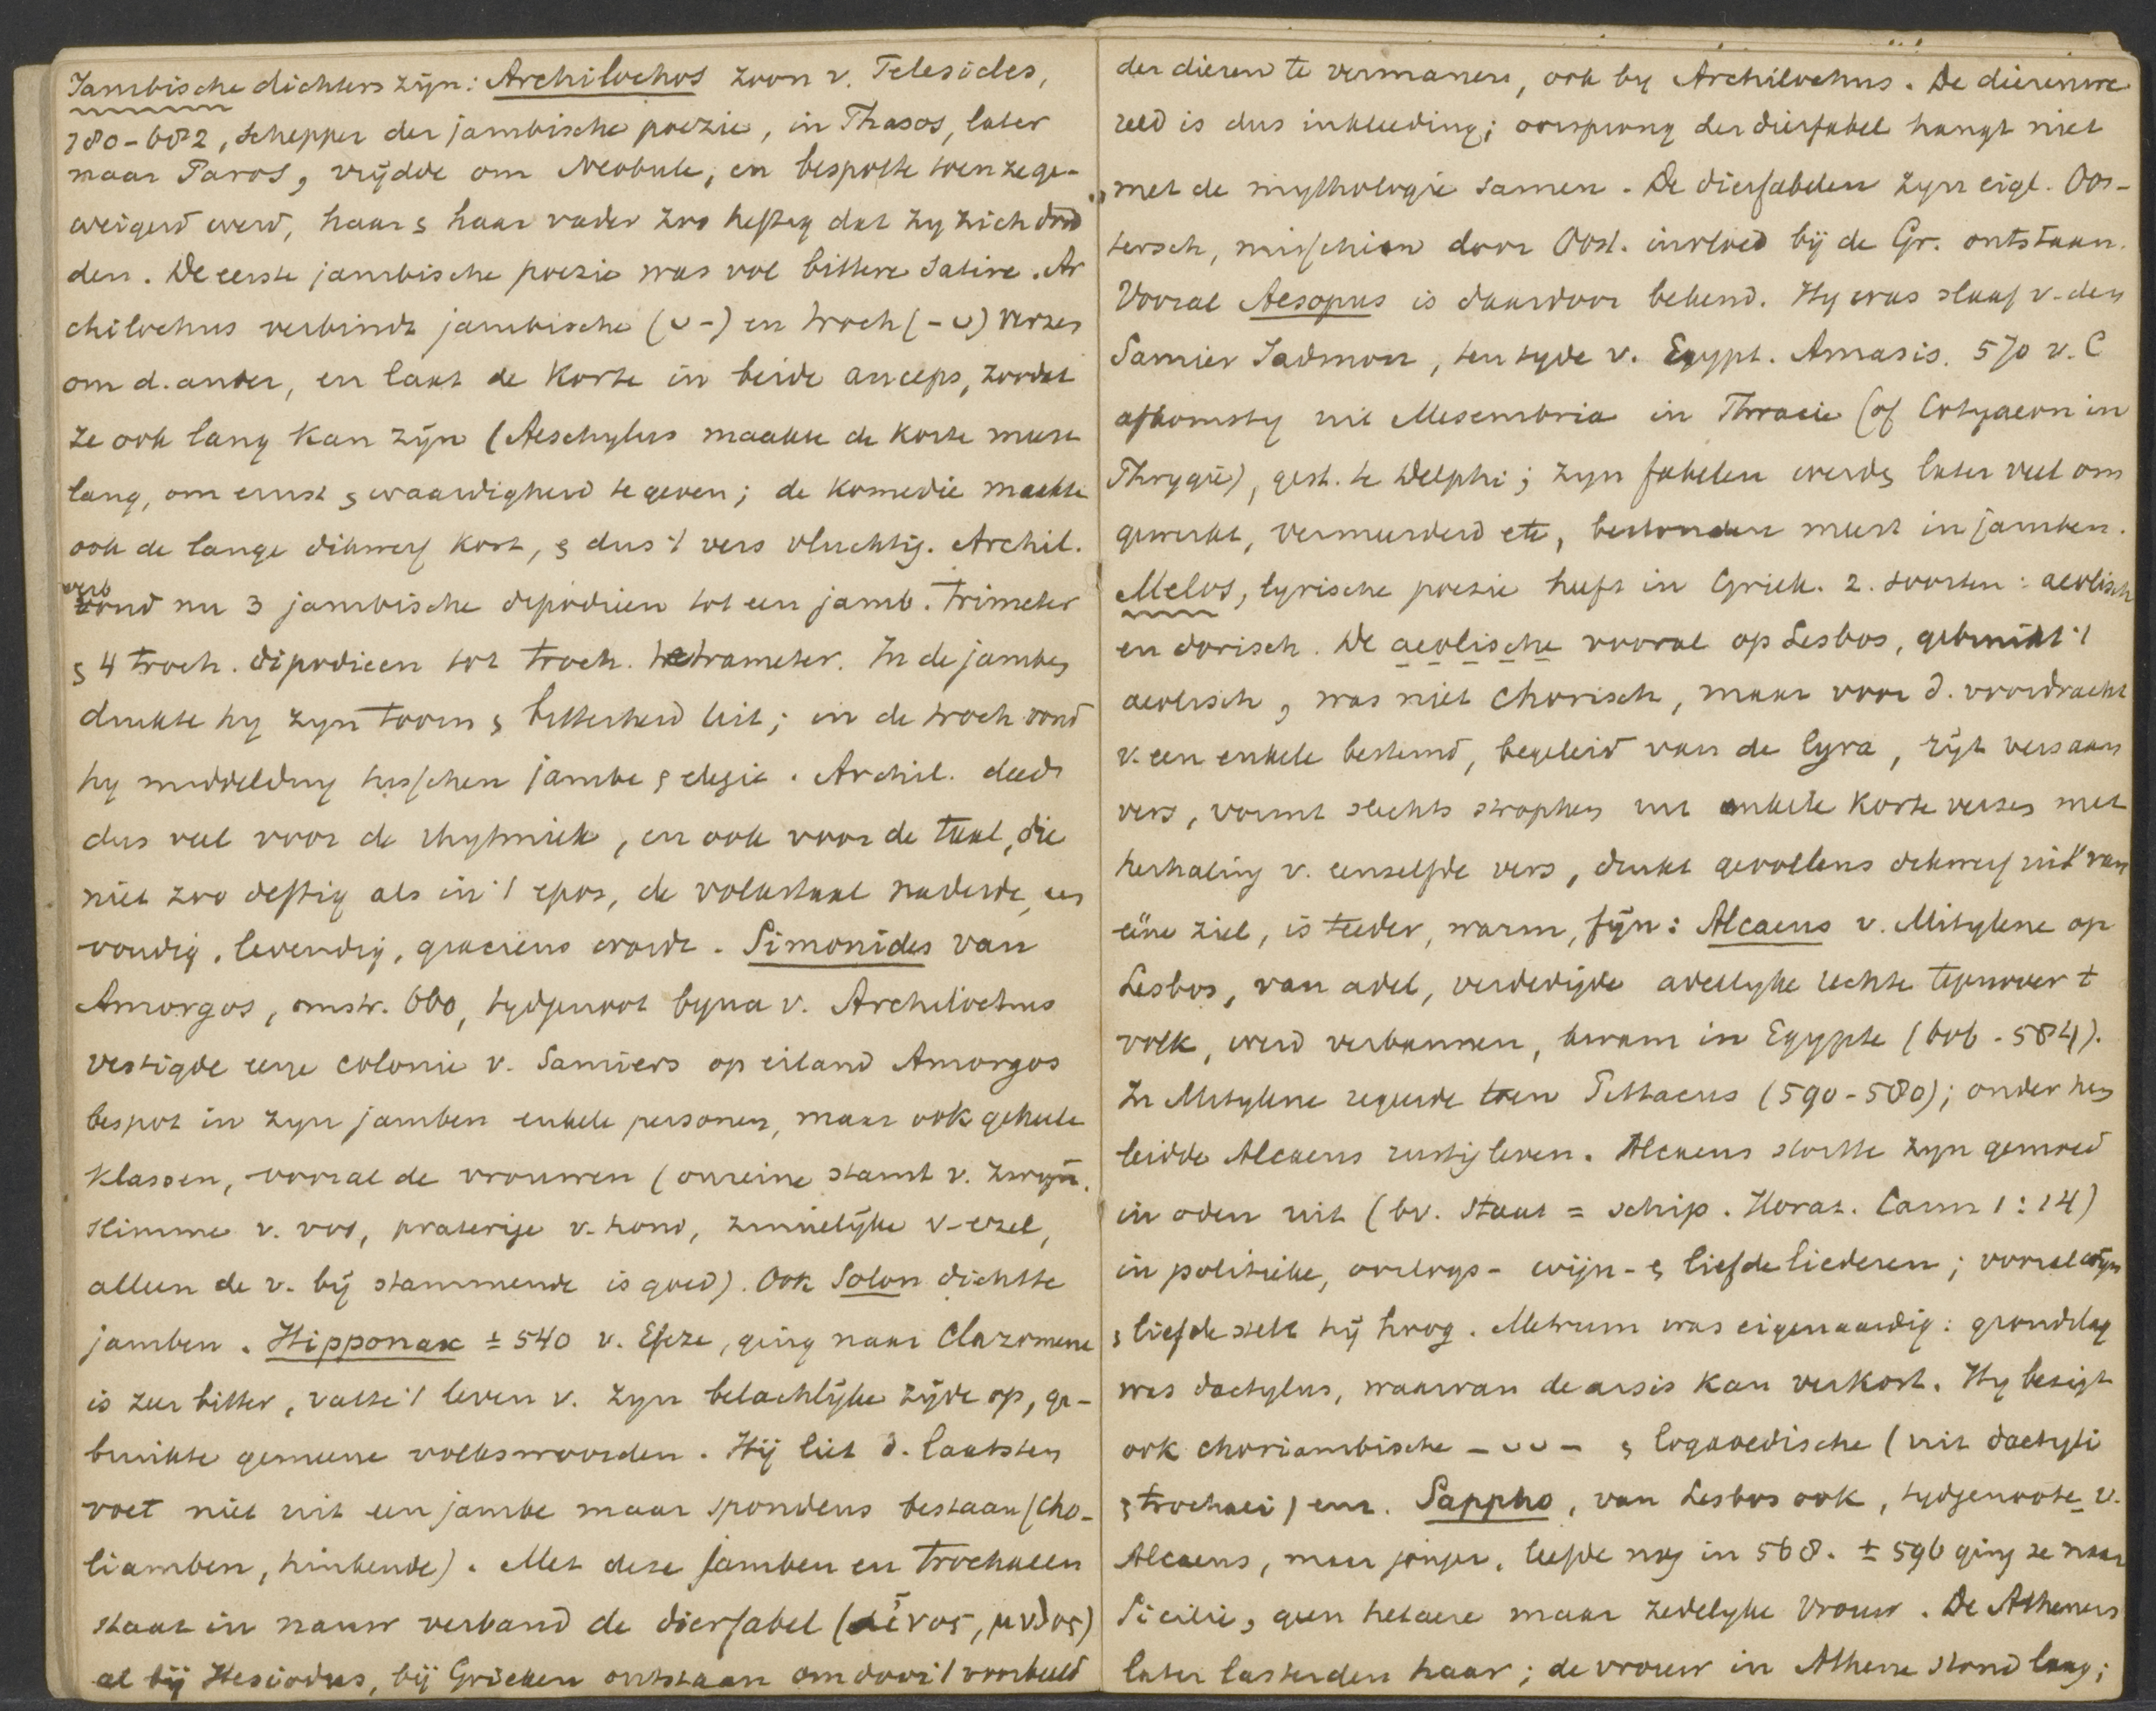 Jambische dichters zijn: Archilochos zoon v. Telesicles,
780-682, Schepper der jambische poezie, in Thasos, later
naar Paros, vrijdde om Neobule, en bespotte toen ze ge-
weigerd werd, haar & haar vader zoo heftig dat zy zich dood
den. De eerste jambische poezie was vol bittere Satire. Ar
chilochus verbindt jambische (ᴗ -) en troch (- ᴗ) verzen
om d. ander, en laat de korte in beide anceps, zoodat
ze ook lang kan zijn (Aeschylus maakte de korte meest
lang, om ernst & waardigheid te geven; de komedie maakte
ook de lange dikwerf kort, & dus 't vers vluchtig. Archil.
verbond nu 3 jambische dipodieen tot een jamb. trimeter
& 4 troch. dipodieen tot troch. tetrameter. In de jamben
drukte hy zyn toorn & bitterheid uit; in de troch vond
hy middelding tusschen jambe & elegie. Archil. deed
dus veel voor de rhytmiek, en ook voor de taal, die
niet zoo deftig als in 't epos, de volkstaal naderde, een
voudig, levendig, gracieus word. Simonides van
Amorgos, omstr. 660, tydgenoot byna v. Archilochus
vestigde eene colonie v. Samiers op eiland Amorgos
bespot in zyn jamben enkele personen, maar ook geheele
klassen, vooral de vrouwen (onreine stamt v. zwijn.
slimme v. vos, praterige v. hond, zinnelijke v. ezel,
alleen de v. bij stammende is goed). Ook Solon dichtte
jamben. Hipponax ± 540 v. Efeze, ging naar Clazomene
is zeer bitter, vatte 't leven v. zyn belachlijke zijde op, ge-
bruikte gemeene volkswoorden. Hij liet d. laatsten
voet niet uit een jambe maar spondeus bestaan (cho-
liamben, hinkende). Met deze jamben en trochaeen
staat in nauw verband de dierfabel (αἶνος, μυθος)
al bij Hesiodus, bij Grieken ontstaan om door 't voorbeeld
der dieren te vermanen, ook by Archilochus. De dierenwe
reld is dus inkleeding; oorsprong der dierfabel hangt niet
met de mythologie samen. De dierfabelen zyn eigl. Oos-
tersch, misschien door Oost. invloed bij de Gr. ontstaan.
Vooral Aesopus is daardoor bekend. Hy was slaaf v. den
Samier Jadmon, ten tyde v. Egypt. Amasis. 570 v. C
afkomstig uit Mesembria in Thracie (of Cotyaeon in
Phrygië), gest. te Delphi; zyn fabelen werden later veel om
gewerkt, vermeerderd etc, bestonden meest in jamben.
Melos, lyrische poezie heeft in Griek. 2. soorten: aeolisch
en dorisch. De aeolische vooral op Lesbos, gebruikt 't
aeolisch, was niet chorisch, maar voor d. voordracht
v. een enkele bestemd, begeleid van de lyra, rijt vers aan
vers, vormt slechts strophen uit enkele korte verzen met
herhaling v. eenzelfde vers, drukt gevoelens dikwerf uit van
eène ziel, is teeder, warm, fijn: Alcaeus v. Mitylene op
Lesbos, van adel, verdedigde adellyke rechte tegenover t
volk, werd verbannen, kwam in Egypte (606 - 584).
In Mitylene regeerde toen Pittacus (590-580); onder hem
leidde Alcaeus rustig leven. Alcaeus stortte zyn gemoed
in oden uit (bv. Staat = schip. Horat. Carm 1:14)
in politieke, oorlogs- wijn- & liefdeliederen; vooral wijn
& liefde stelt hij hoog. Metrum was eigenaardig: grondslag
was dactylus, waarvan de arsis kan verkort. Hy bezigt
ook choriambische - ᴗ ᴗ - & logaoedische (uit dactyli
& trochaei) enz. Sappho, van Lesbos ook, tydgenoote v.
Alcaeus, maar jonger, leefde nog in 568. ± 596 ging ze naar
Sicilie, geen hetaere maar zedelyke vrouw. De Atheners
later lasterden haar; de vrouw in Athene stond laag;